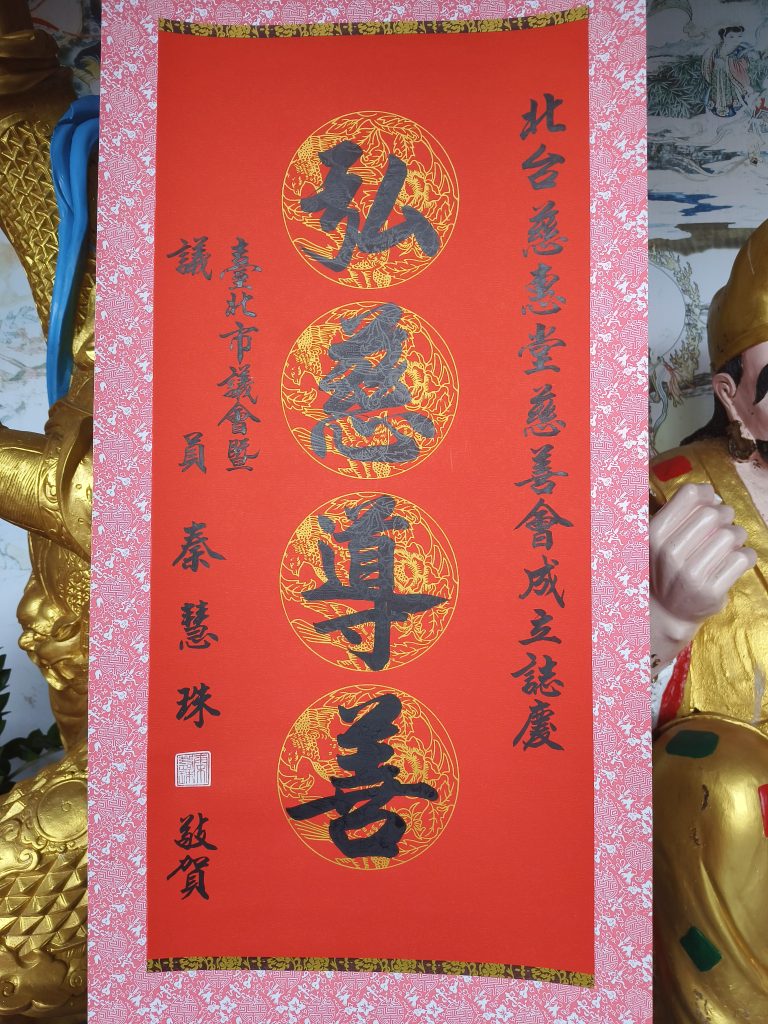 北台慈惠堂慈善會成立誌慶
弘慈導善
臺北市議會暨
議員秦慧珠
敬賀